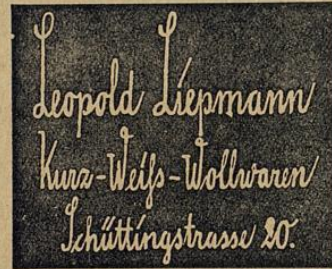 Leopold Liepmann
Kurz-Weiſs-Wollwaren
Schüttingstrasse 20.